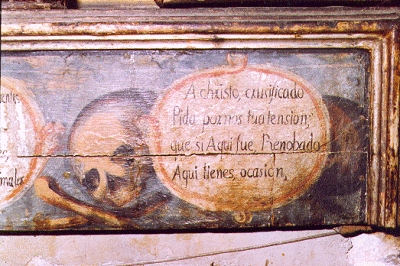 A christo, crucificado
Pida por nos tu atension;
que si Aqui fue, Renobado
Aqui tienes, ocasion,